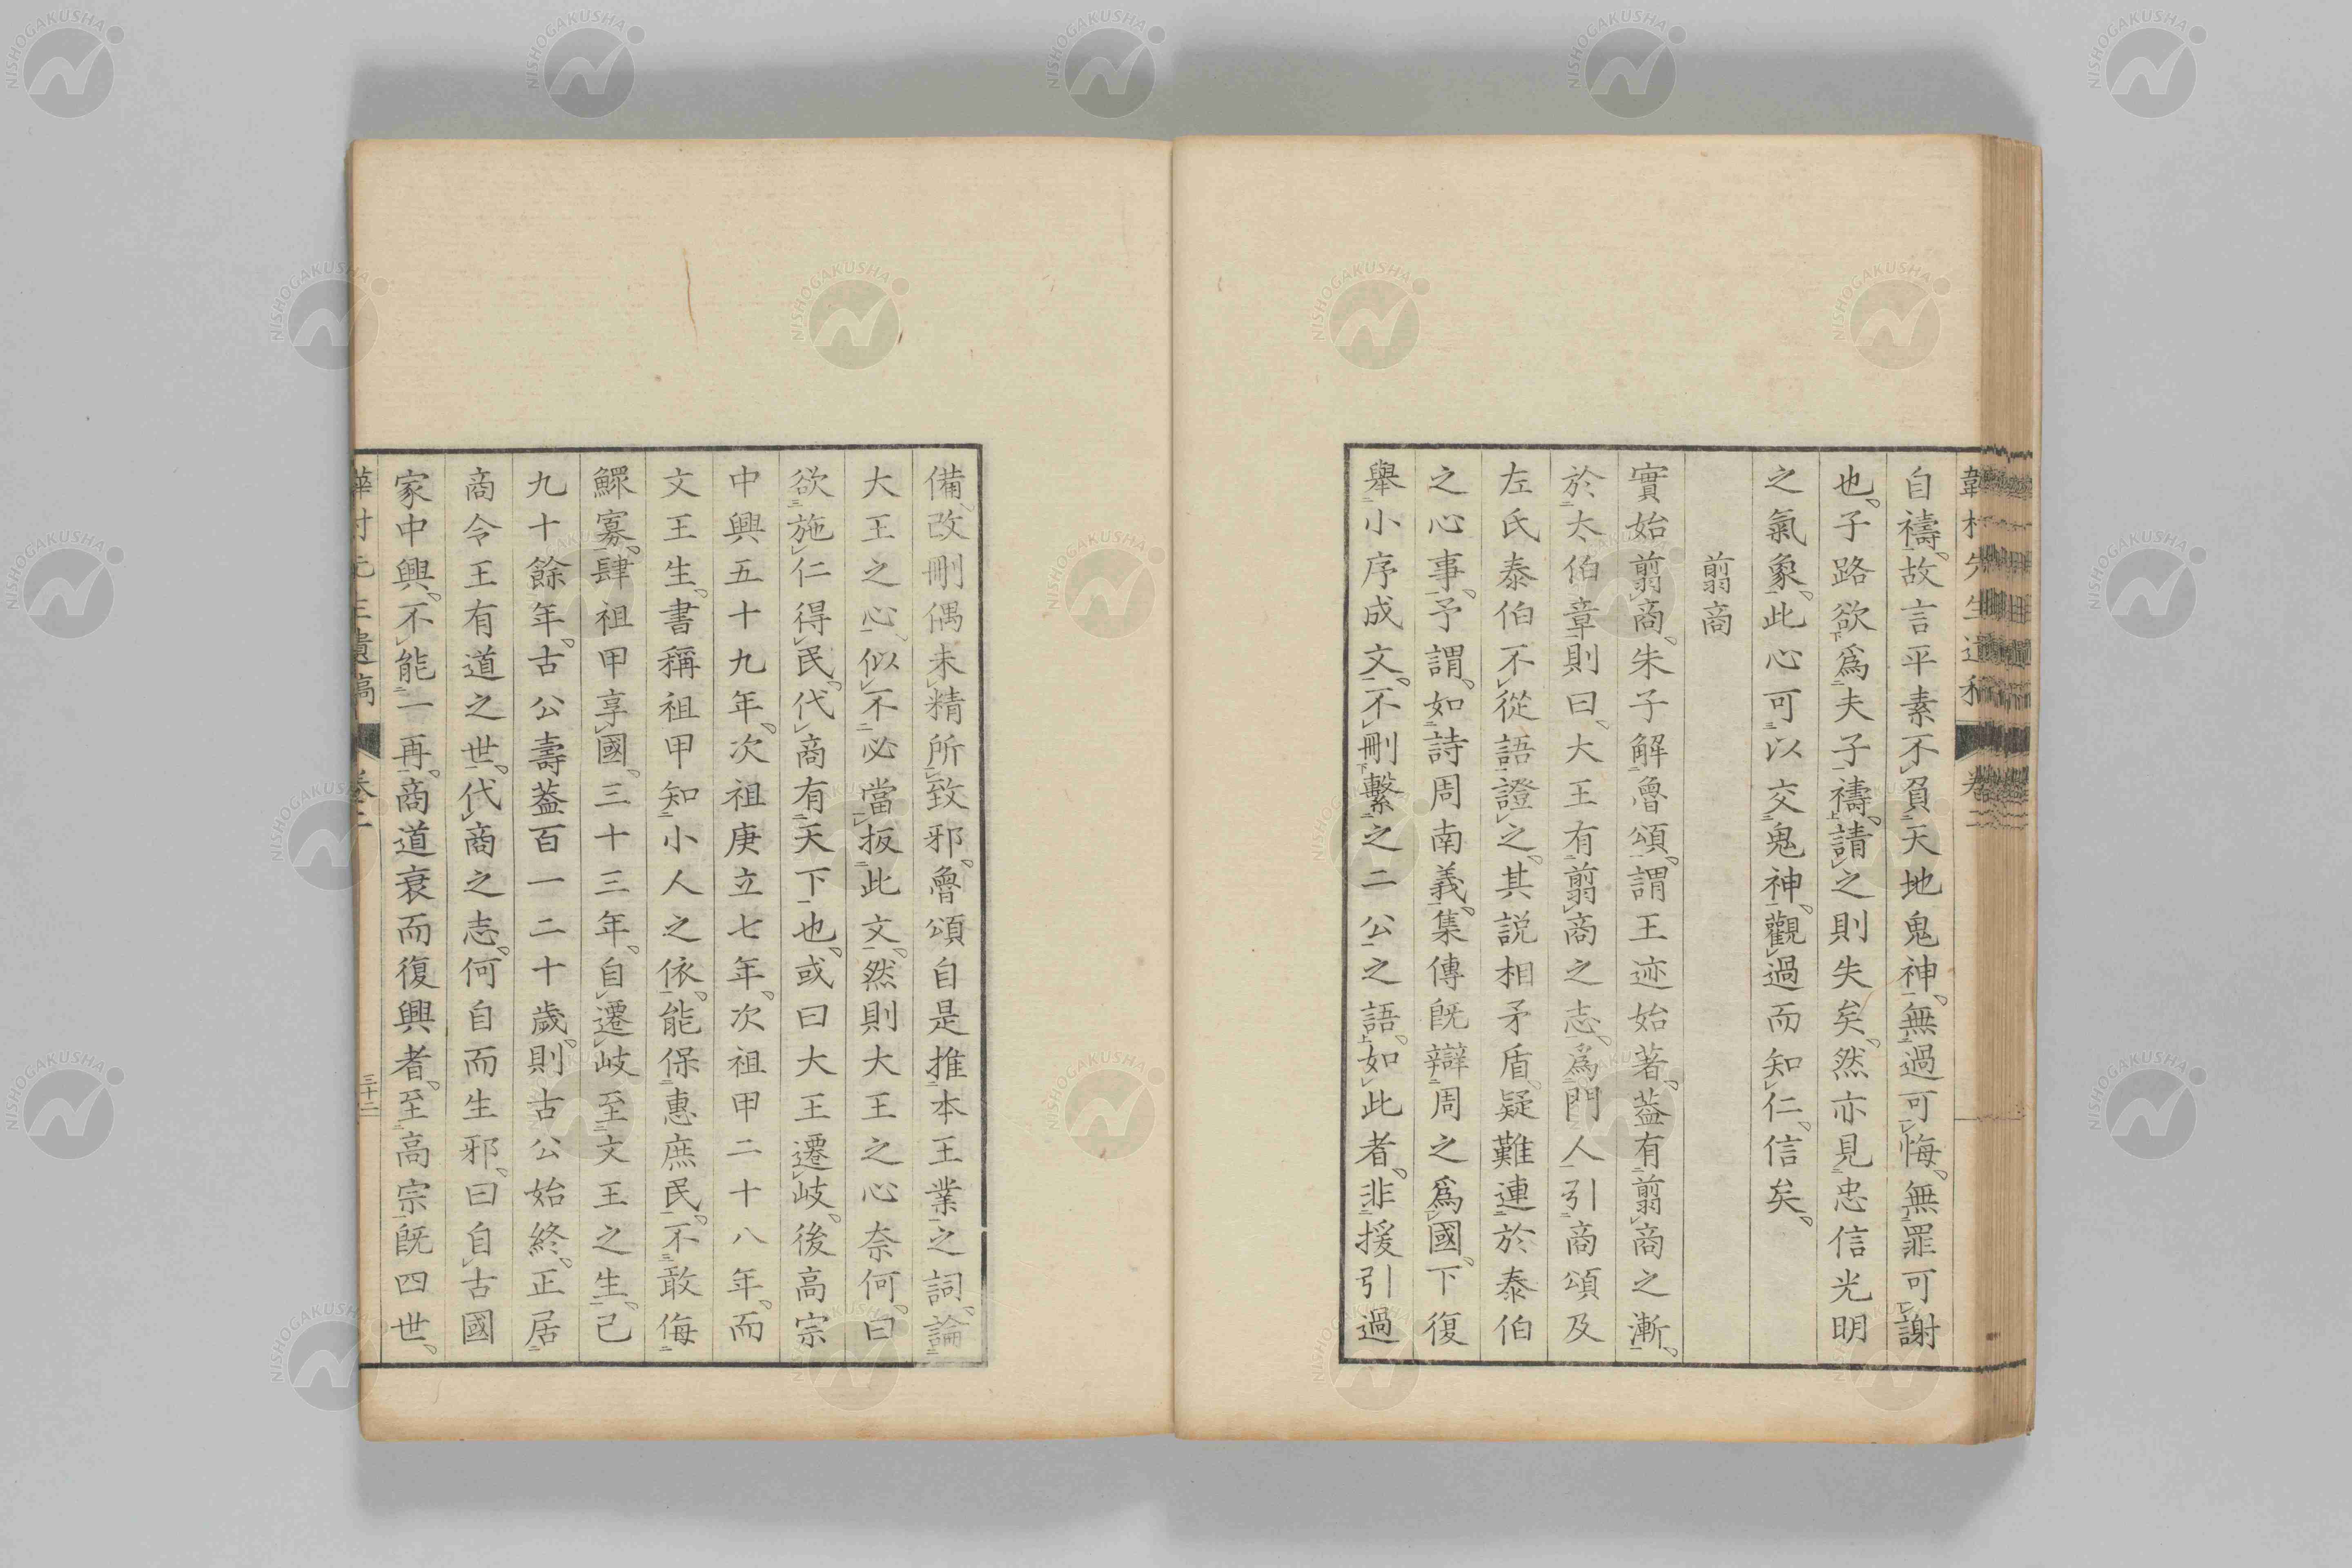 自禱故言平素不負天地鬼神無過可悔無罪可謝
也子路欲爲夫子禱請之則失矣然亦見忠信光明
之氣象此心可以交鬼神觀過而知仁信矣
翦商
實始翦商朱子解魯頌謂王迹始著蓋有翦商之漸
於太伯章則曰大王有翦商之志爲門人引商頌及
左氏泰伯不從語證之其説相矛盾疑難連於泰伯
之心事予謂如詩周南義集傳既辯周之爲國下復
舉小序成文不刪繫之二公之語如此者非援引過
備改刪偶未精所致邪魯頌自是推本王業之詞論
大王之心似不必當扳此文然則大王之心奈何曰
欲施仁得民代商有天下也或曰大王遷岐後高宗
中興五十九年次祖庚立七年次祖甲二十八年而
文王生書稱祖甲知小人之依能保惠庶民不敢侮
鰥寡肆祖甲享國三十三年自遷岐至文王之生已
九十餘年古公壽蓋百一二十歲則古公始終正居
商令王有道之世代商之志何自而生邪曰自古國
家中興不能一再商道衰而復興者至高宗既四世
遺稿 卷二 三十二
NISHOGAKUSHA